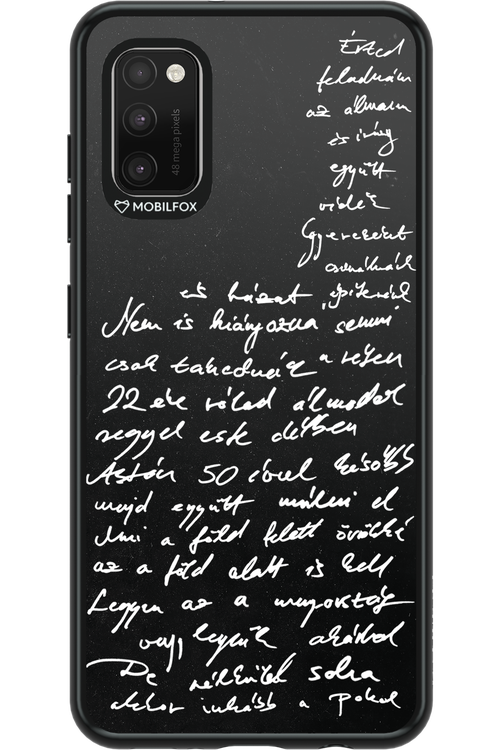 48 mega pixels
MOBILFOX
Érted
feladnám
az álmam
és irány
együtt
vidék
Gyerekeket
csinálnánk
és házat építenénk
Nem is hiányozna semmi
csak takednánk a réten
22 éve rólad álmodok
reggel este délben
Aztán 50 évvel később
majd együtt múlni el
Ami a föld felett örökké
az a föld alatt is kell
Legyen az a mennyország
vagy legyünk akárhol
De nélküled soha
akkor inkább a pokol